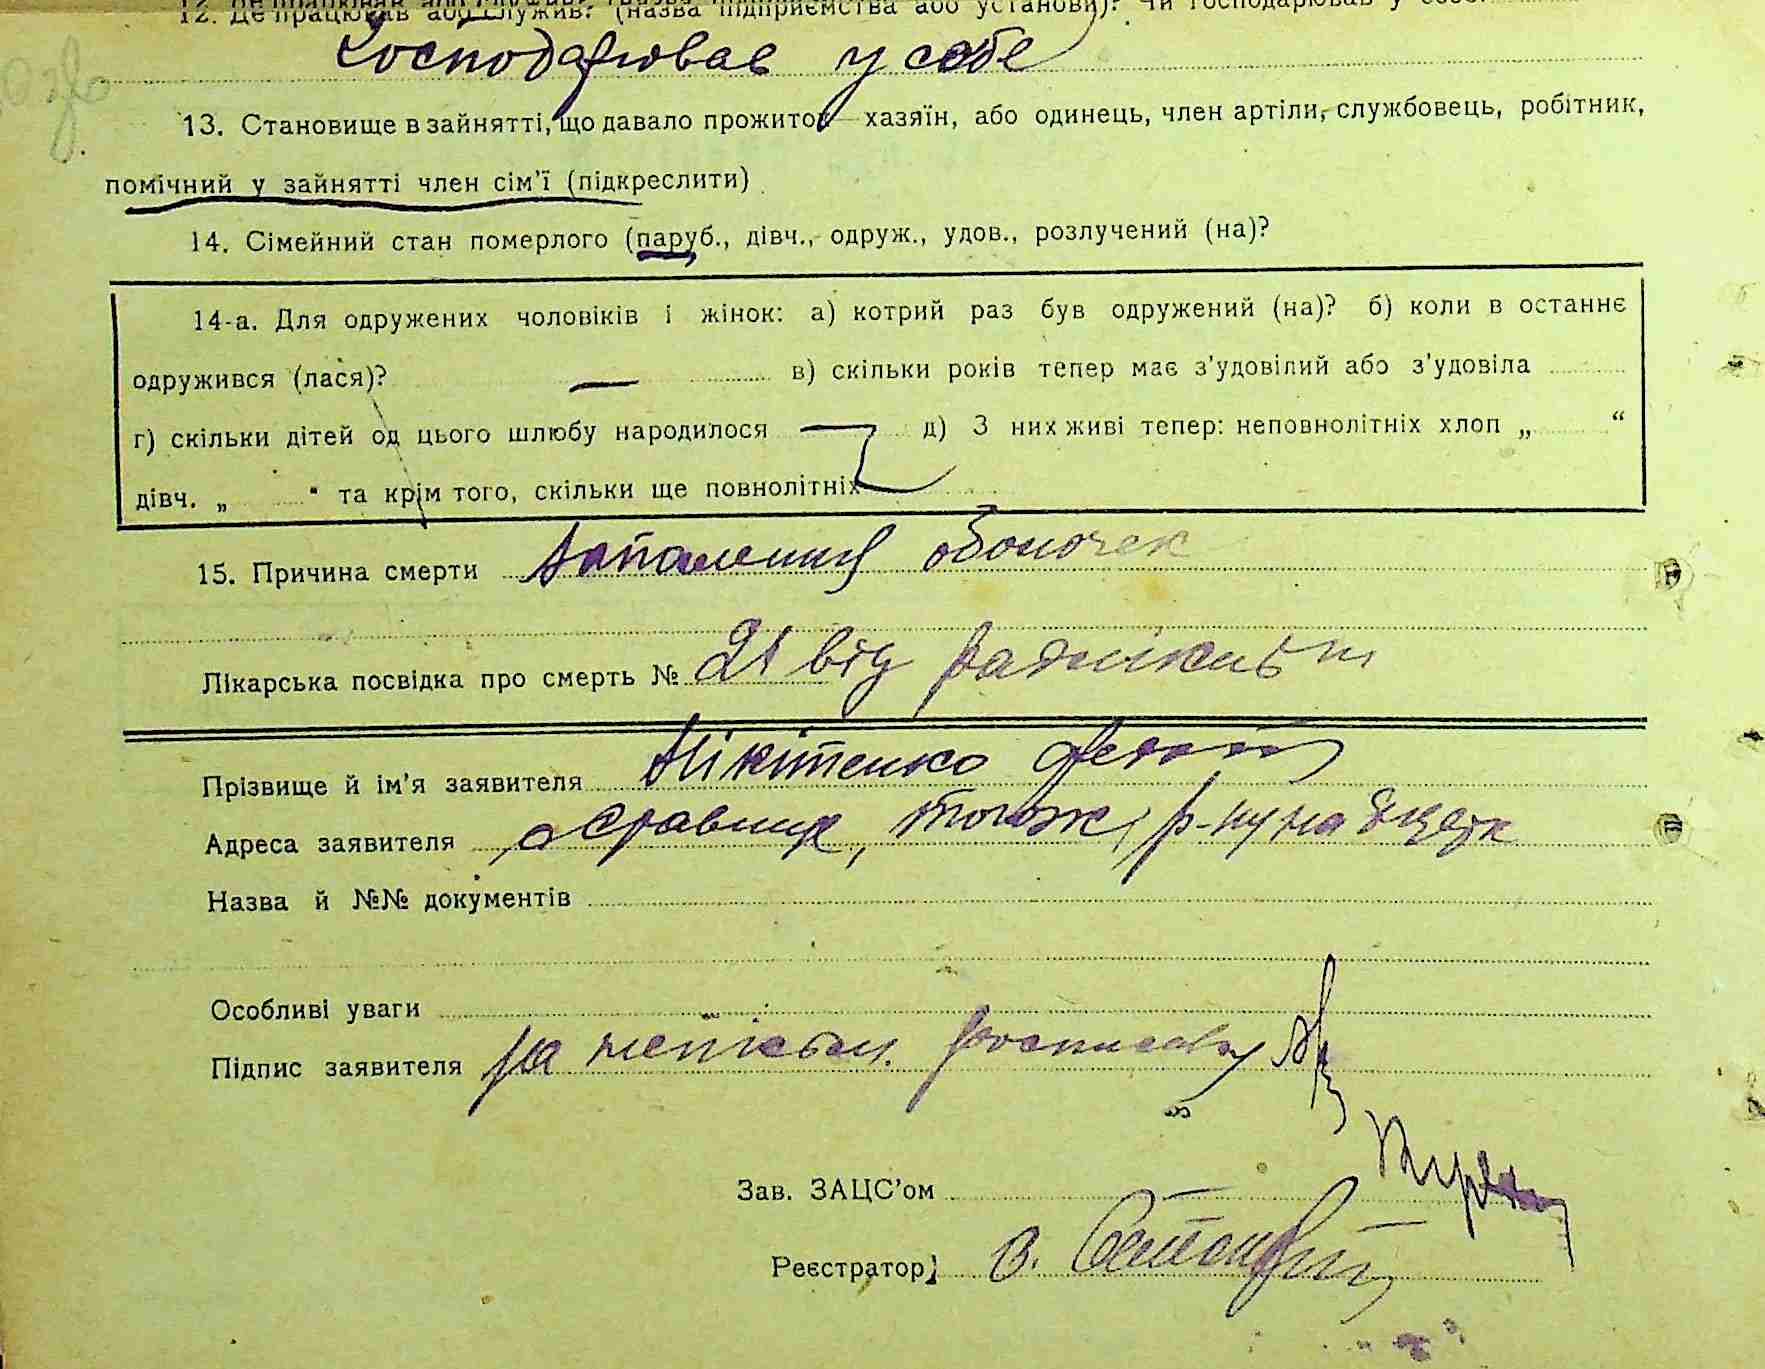 12. Де працював або служив? (назва підприємства або установи)? Чи господарював у себе?
Господарював у себе
13. Становище в зайнятті, що давало прожиток — хазяїн, або одинець, член артіли, службовець, робітник,
помічний у зайнятті член сім'ї (підкреслити)
14. Сімейний стан померлого (паруб., дівч., одруж., удов., розлучений (на)?
14-а. Для одружених чоловіків і жінок: а) котрий раз був одружений (на)? б) коли в останнє
одружився (лася)? — в) скільки років тепер має з'удовілий або з'удовіла
г) скільки дітей од цього шлюбу народилося — д) З них живі тепер: неповнолітніх хлоп „ “
дівч. „ “ та крім того, скільки ще повнолітніх
15. Причина смерти Запалення оболочек
Лікарська посвідка про смерть № 21 від
Прізвище й ім'я заявителя Нікітенко
Адреса заявителя р-ну на
Назва й №№ документів
Особливі уваги
Підпис заявителя за
Зав. ЗАЦС'ом
Реєстратор В.